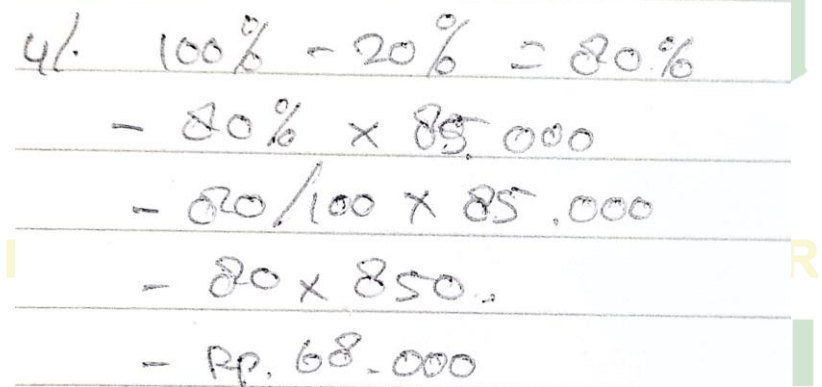 4/. 100% - 20% = 80%
- 80% x 85.000
- 80/100 x 85.000
- 80 x 850.
- Rp. 68.000